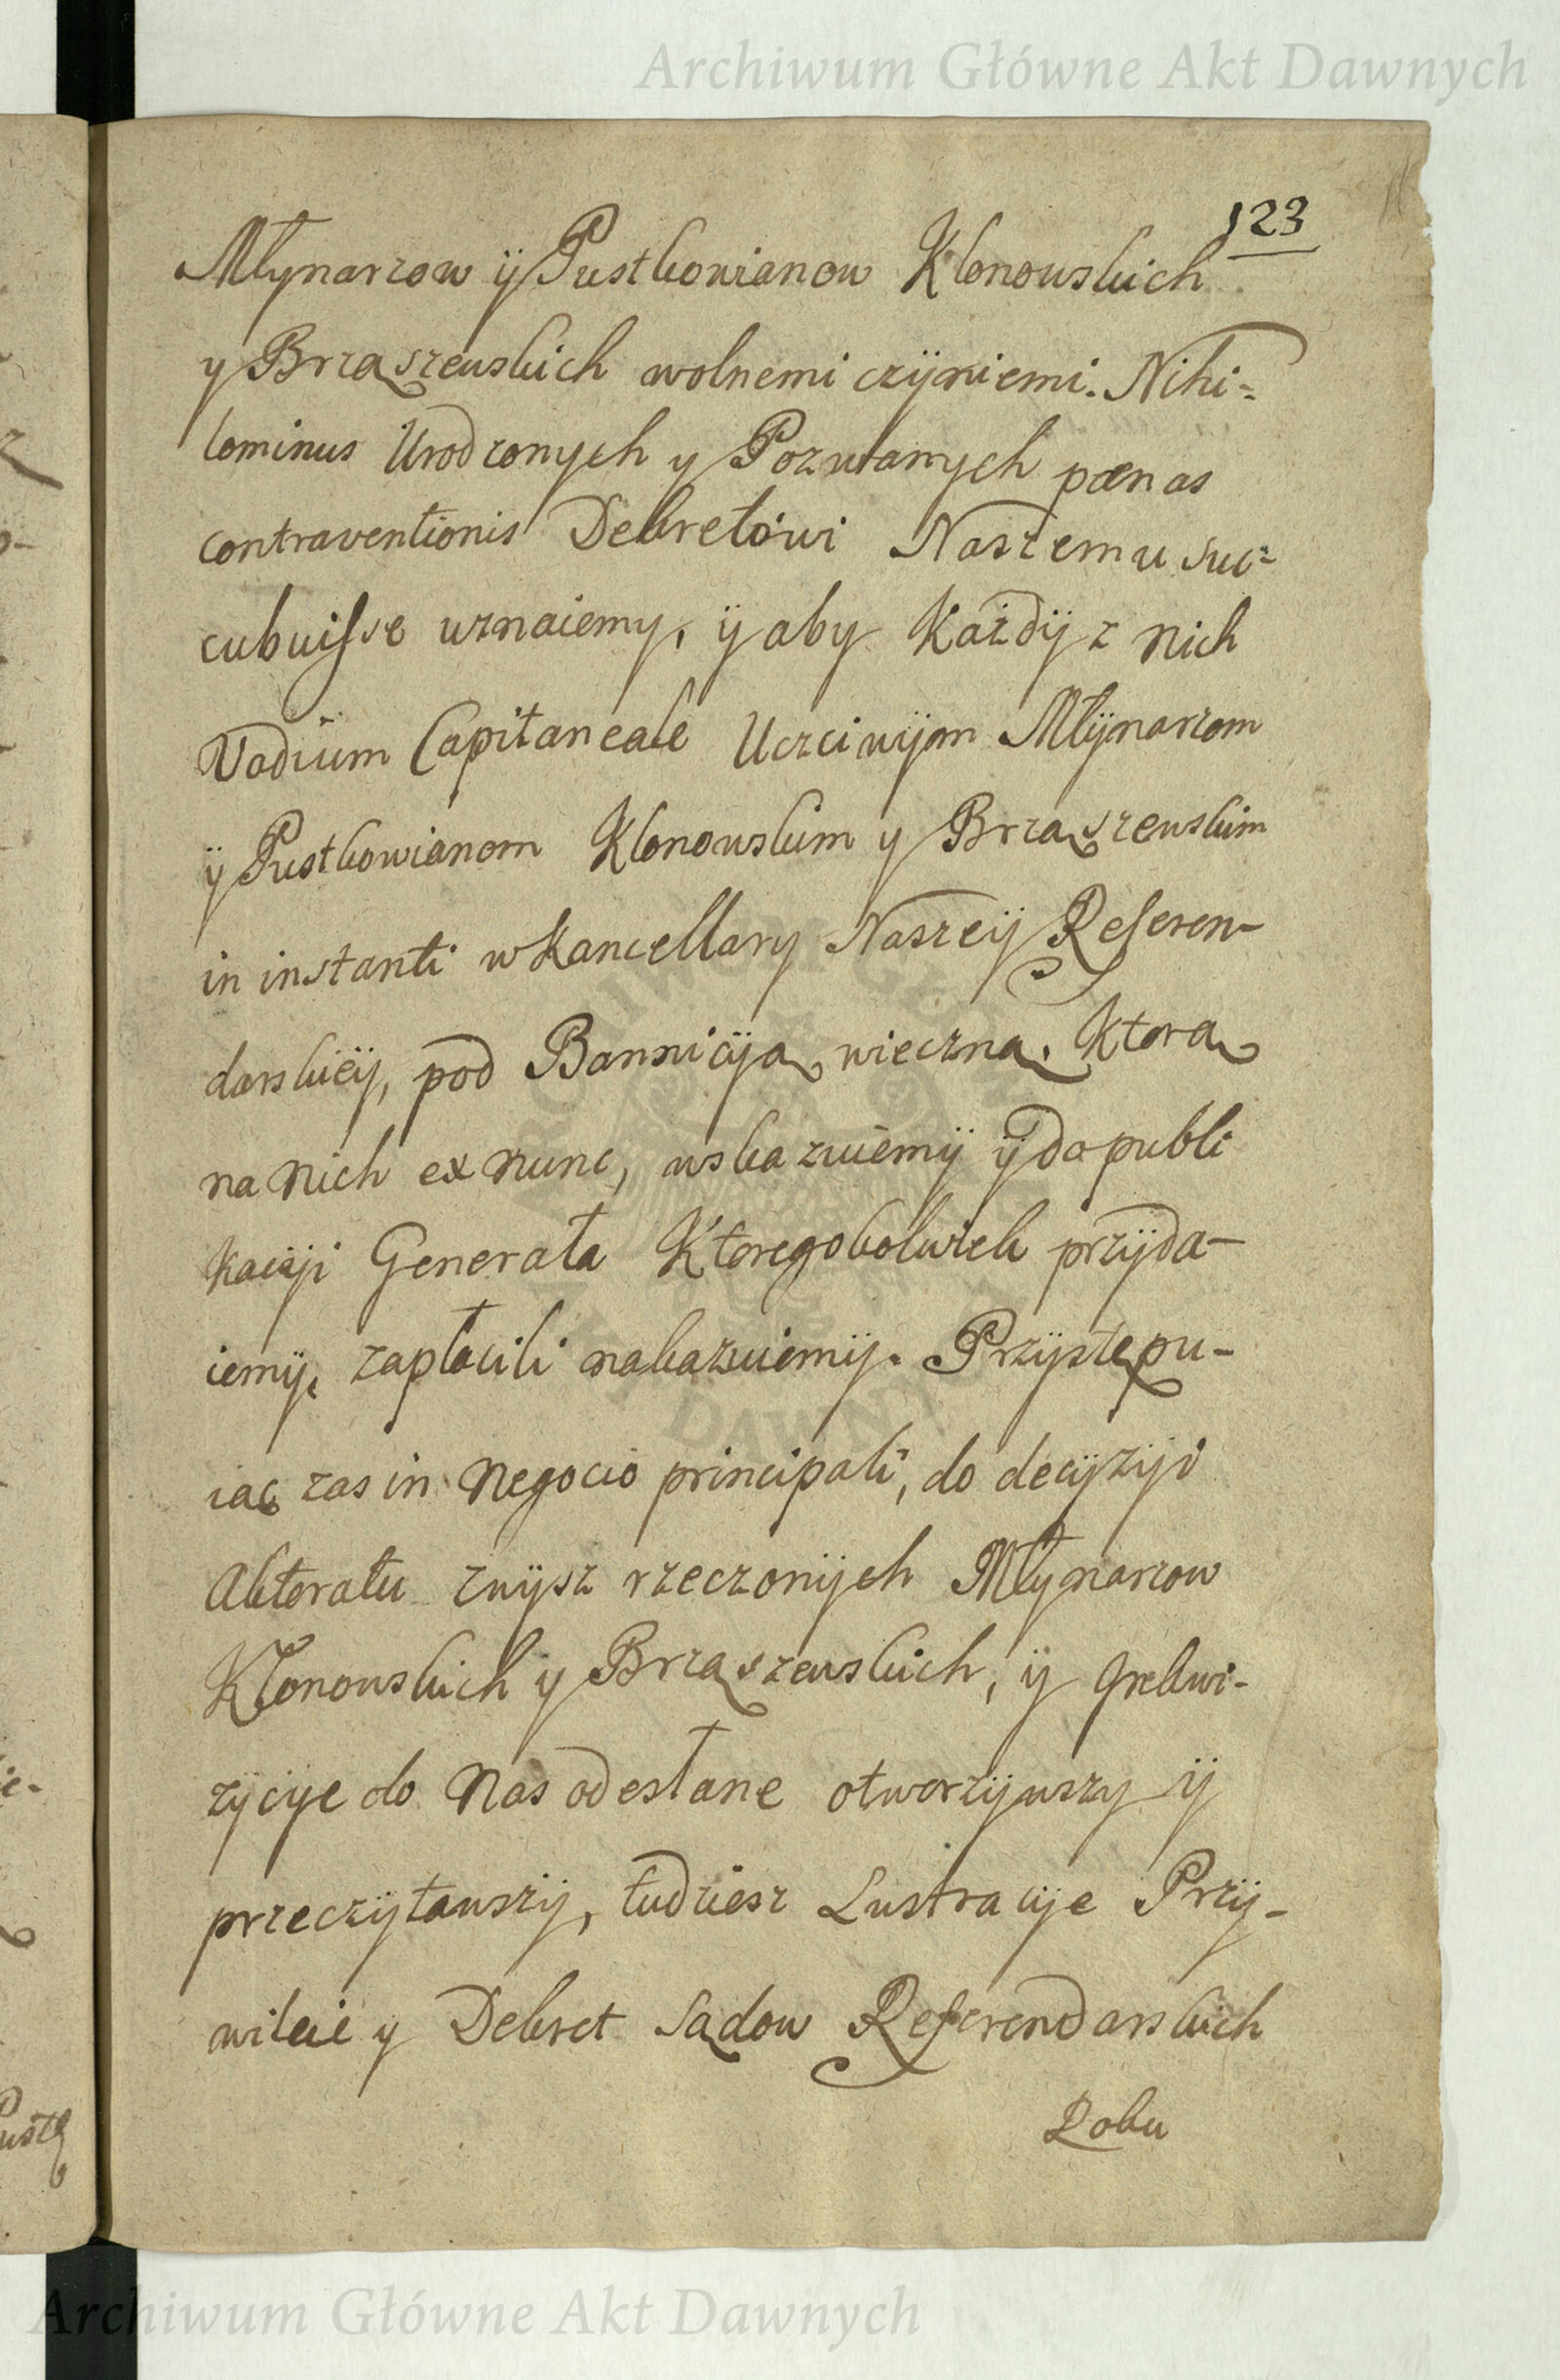 Archiwum Główne Akt Dawnych
123
Młynarzow ÿ Pustkowianow Klonowskich
y Brząszewskich wolnemi czÿniemi. Nihi=
lominus Urodzonych y Pozwanych pœnas
contraventionis Dekretowi Naszemu suc=
cubuisse uznaiemy, ÿ aby Każdÿ z nich
Vadium Capitaneale Uczciwÿm Młÿnarzom
ÿ Pustkowianom Klonowskim y Brząszewskim
in instanti w Kancellary Naszeÿ Referen-
darskieÿ, pod Bannicÿą wieczną, Ktorą
na nich ex nunc, wskazuiemÿ ÿ do publi
kacÿi Generała Ktoregokolwiek przÿda-
iemÿ, zapłacili nakazuiemÿ. Przÿstępu-
iąc zas in Negocio principali, do decÿzÿi
Aktoratu zwÿsz rzeczonÿch Młynarzow
Kłonowskich ÿ Brząszewskich, ÿ Jnkwi-
zycÿe do Nas odesłane otworzÿwszy ÿ
przeczÿtawszÿ, tudziesz Lustracÿe Przÿ-
wileie y Dekret Sądow Referendarskich
Roku
ARCHIWUM GŁÓWNE AKT DAWNYCH
Archiwum Główne Akt Dawnych